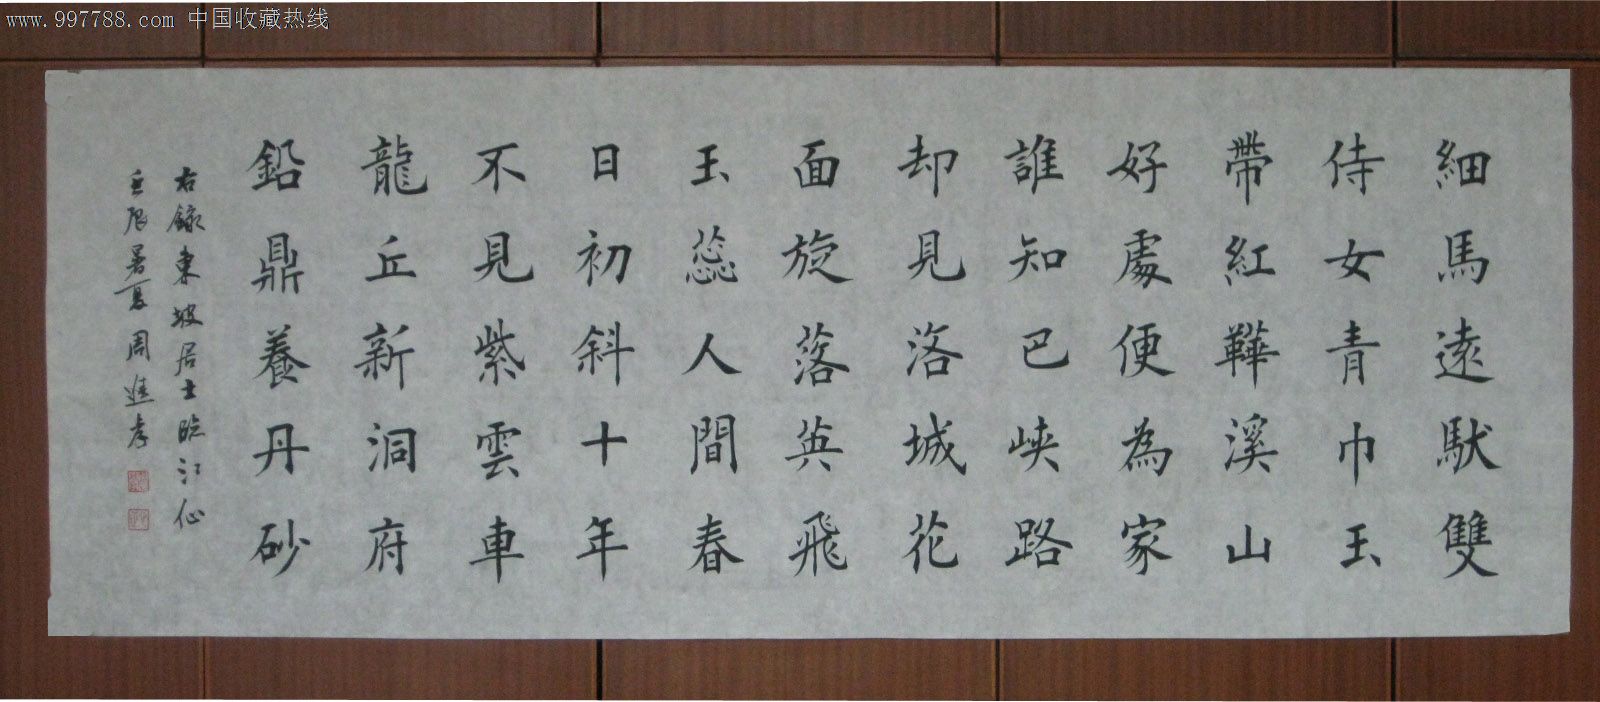 www.997788.com 中国收藏热线
細馬遠馱雙
侍女青巾玉
帶紅鞾溪山
好處便為家
誰知巴峽路
却見洛城花
面旋落英飛
玉蕊人間春
日初斜十年
不見紫雲車
龍丘新洞府
鉛鼎養丹砂
右錄東坡居士臨江仙
壬辰暑夏周進孝